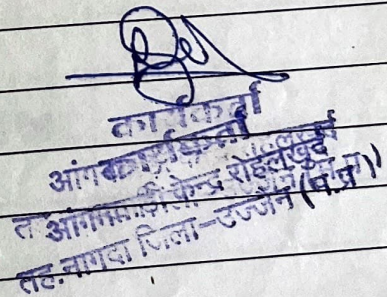 कार्यकर्ता
कार्यकर्ता
आंगनवाड़ी केन्द्र रोहलखुर्द
तह. नागदा जिला-उज्जैन (म.प्र.)